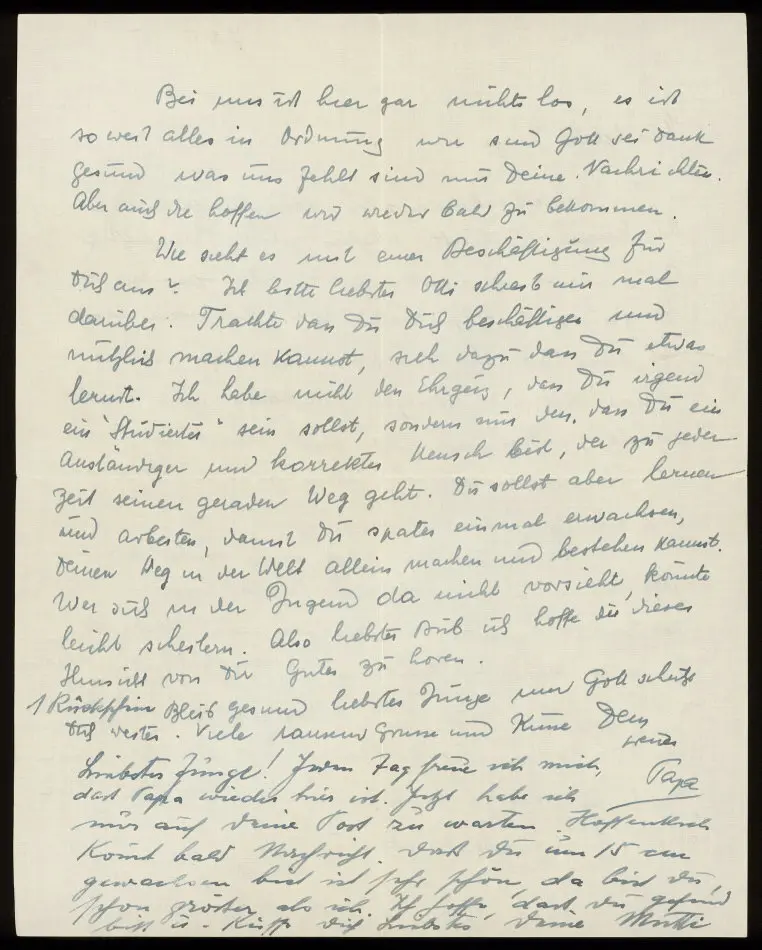 Bei uns ist hier gar nichts los, es ist
soweit alles in Ordnung wir sind Gott sei Dank
gesund was uns fehlt sind nur Deine Nachrichten.
Aber auch die hoffen wir wieder bald zu bekommen.
Wie sieht es mit einer Beschäftigung für
Dich aus? Ich bitte liebster Otti schreib mir mal
darüber. Trachte dass Du Dich beschäftigen und
nützlich machen kannst, sieh dazu dass Du etwas
lernst. Ich habe nicht den Ehrgeiz, dass Du irgend
ein "Studierter" sein sollst, sondern nur den, dass Du ein
anständiger und korrekter Mensch bist, der zu jeder
Zeit seinen geraden Weg geht. Du sollst aber lernen
und arbeiten, damit Du später einmal erwachsen,
Deinen Weg in der Welt allein machen und bestehen kannst.
Wer sich in der Jugend da nicht vorsieht, könnte
leicht scheitern. Also liebster Bub ich hoffe in dieser
Hinsicht von Dir Gutes zu hören.
1 Rückschein Bleib gesund liebster Junge und Gott schütze
Dich weiter. Viele tausend Grüsse und Küsse Dein
treuer
Papa
Liebster Junge! Jeden Tag freue ich mich,
dass Papa wieder hier ist. Jetzt habe ich
nur auf Deine Post zu warten. Hoffentlich
kommt bald Nachricht. Dass Du um 15 cm
gewachsen bist ist sehr schön, da bist Du,
schon grösser als ich. Ich hoffe, dass du gesund
bist u. Küsse Dich Liebster Deine Mutti